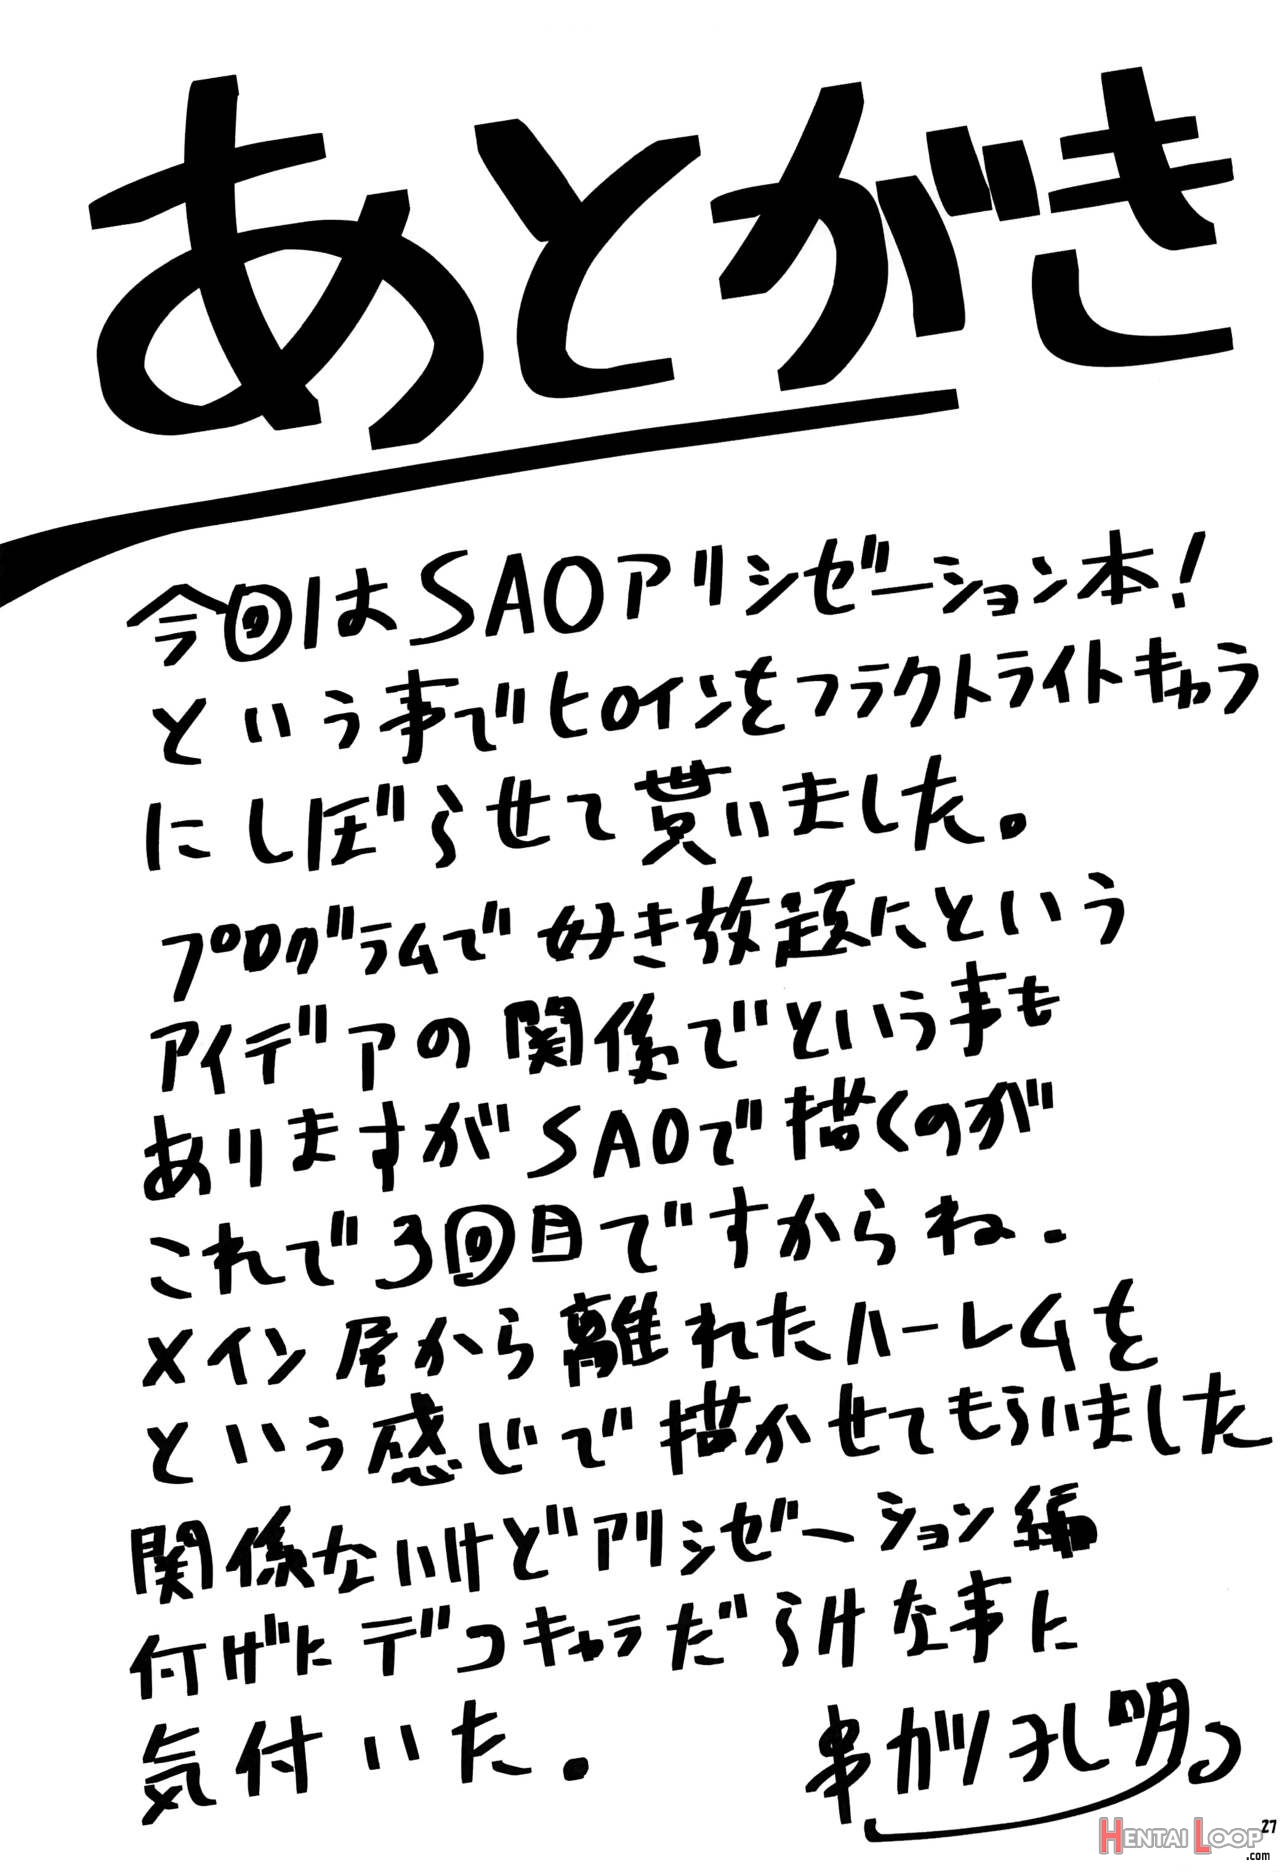 あとがき
今回はSAOアリシゼーション本!
という事でヒロインをフラクトライトキャラ
にしぼらせて貰いました。
プログラムで好き放題にという
アイデアの関係でという事も
ありますがSAOで描くのが
これで3回目ですからね.
メイン尽から離れたハーレムを
という感じで描かせてもらいました
関係ないけどアリシゼーション編
付げにデコキャラだらけな事に
気付いた。
串カツ孔明
27
HENTAI LOOP
.com